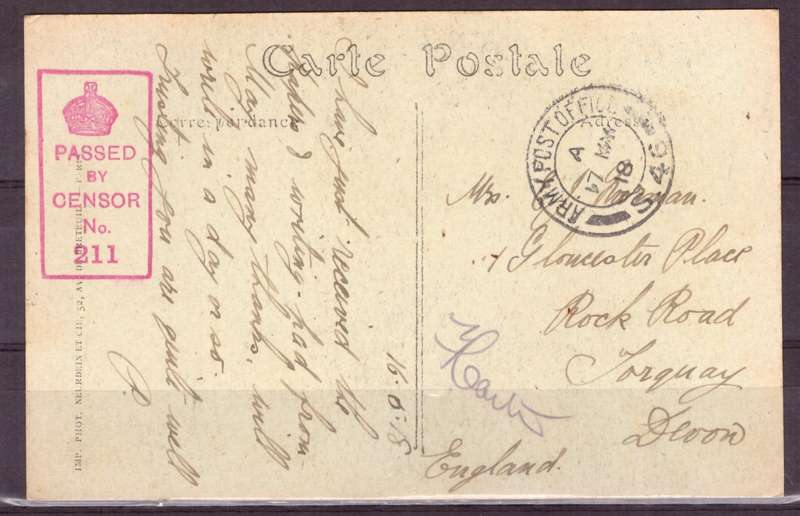 Carte Postale
Correspondance
Adresse
PASSED
BY
CENSOR
No.
211
ARMY POST OFFICE
A
17 MAR
18
S49
16.3.18
I have just received the
& writing-pad from
May many thanks, will
write in a day or so.
Trusting you are quite well
P.
Mrs. Norman.
1 Gloucester Place
Rock Road
Torquay
Devon
England.
IMP. PHOT. NEURDEIN ET CIE, 52, AV. DE BRETEUIL, PARIS